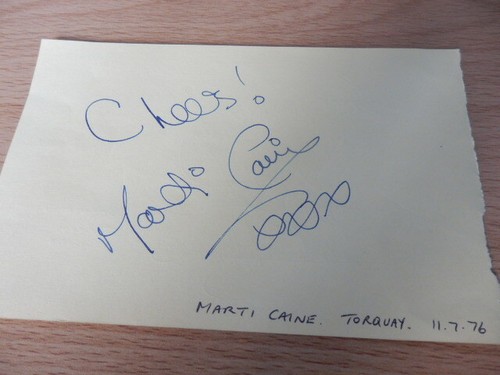 Cheers!
Marti Caine
xxxx
MARTI CAINE. TORQUAY. 11.7.76